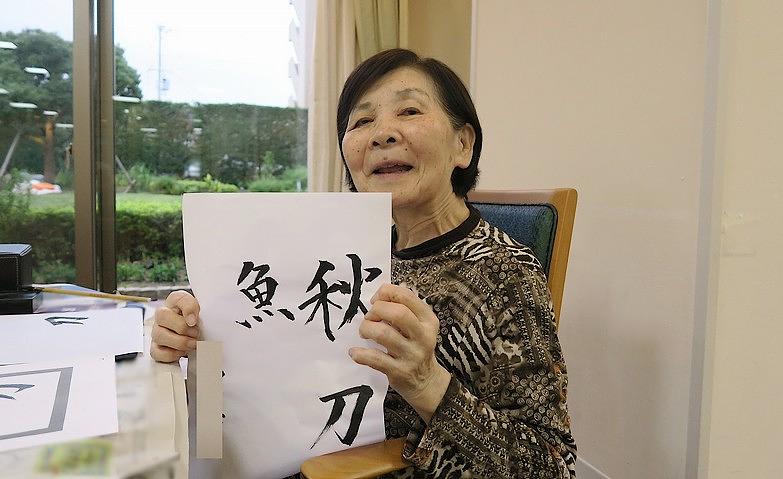 秋刀
魚